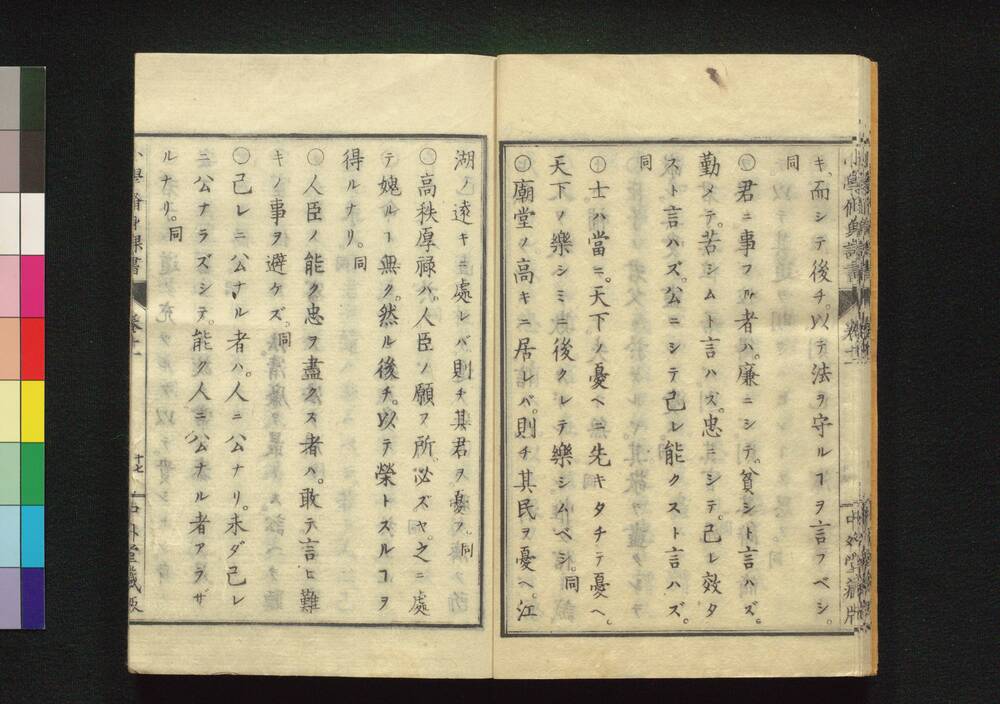 キ、而シテ後チ、以テ法ヲ守ルヿヲ言フベシ。
同
○君ニ事フル者ハ、廉ニシテ、貧シト言ハズ。
勤メテ、苦シムト言ハズ。忠ニシテ、己レ效タ
スト言ハズ。公ニシテ己レ能クスト言ハズ。
同
○士ハ當ニ、天下ノ憂ヘニ先キタチテ憂ヘ、
天下ノ樂シミニ後クレテ樂シムベシ。同
○廟堂ノ高キニ居レバ、則チ其民ヲ憂ヘ、江
湖ノ遠キニ處レバ則チ其君ヲ憂フ。同
○高秩厚禄ハ、人臣ノ願フ所。必ズヤ、之ニ處
テ媿ルヿ無ク、然ル後チ、以テ榮トスルヿヲ
得ルナリ。同
○人臣ノ能ク忠ヲ盡クス者ハ、敢テ言ヒ難
キノ事ヲ避ケズ。同
○己レニ公ナル者ハ、人ニ公ナリ。未ダ己レ
ニ公ナラズシテ、能ク人ニ公ナル者アラザ
ルナリ。同
小學脩身課書
十七
中外堂藏版